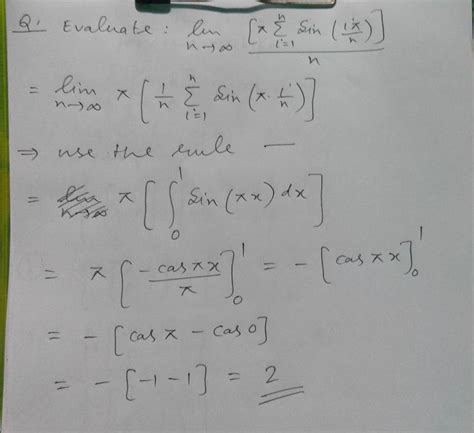 Q. Evaluate : lim n→∞ [π Σ_{i=1}^{n} Sin (iπ/n)] / n
= lim n→∞ π [ 1/n Σ_{i=1}^{n} Sin (π. i/n) ]
⇒ use the rule —
= π [ ∫_0^1 Sin (πx) dx ]
= π [ -cos πx / π ]_0^1 = - [ cos πx ]_0^1
= - [cos π - cos 0]
= - [-1-1] = 2